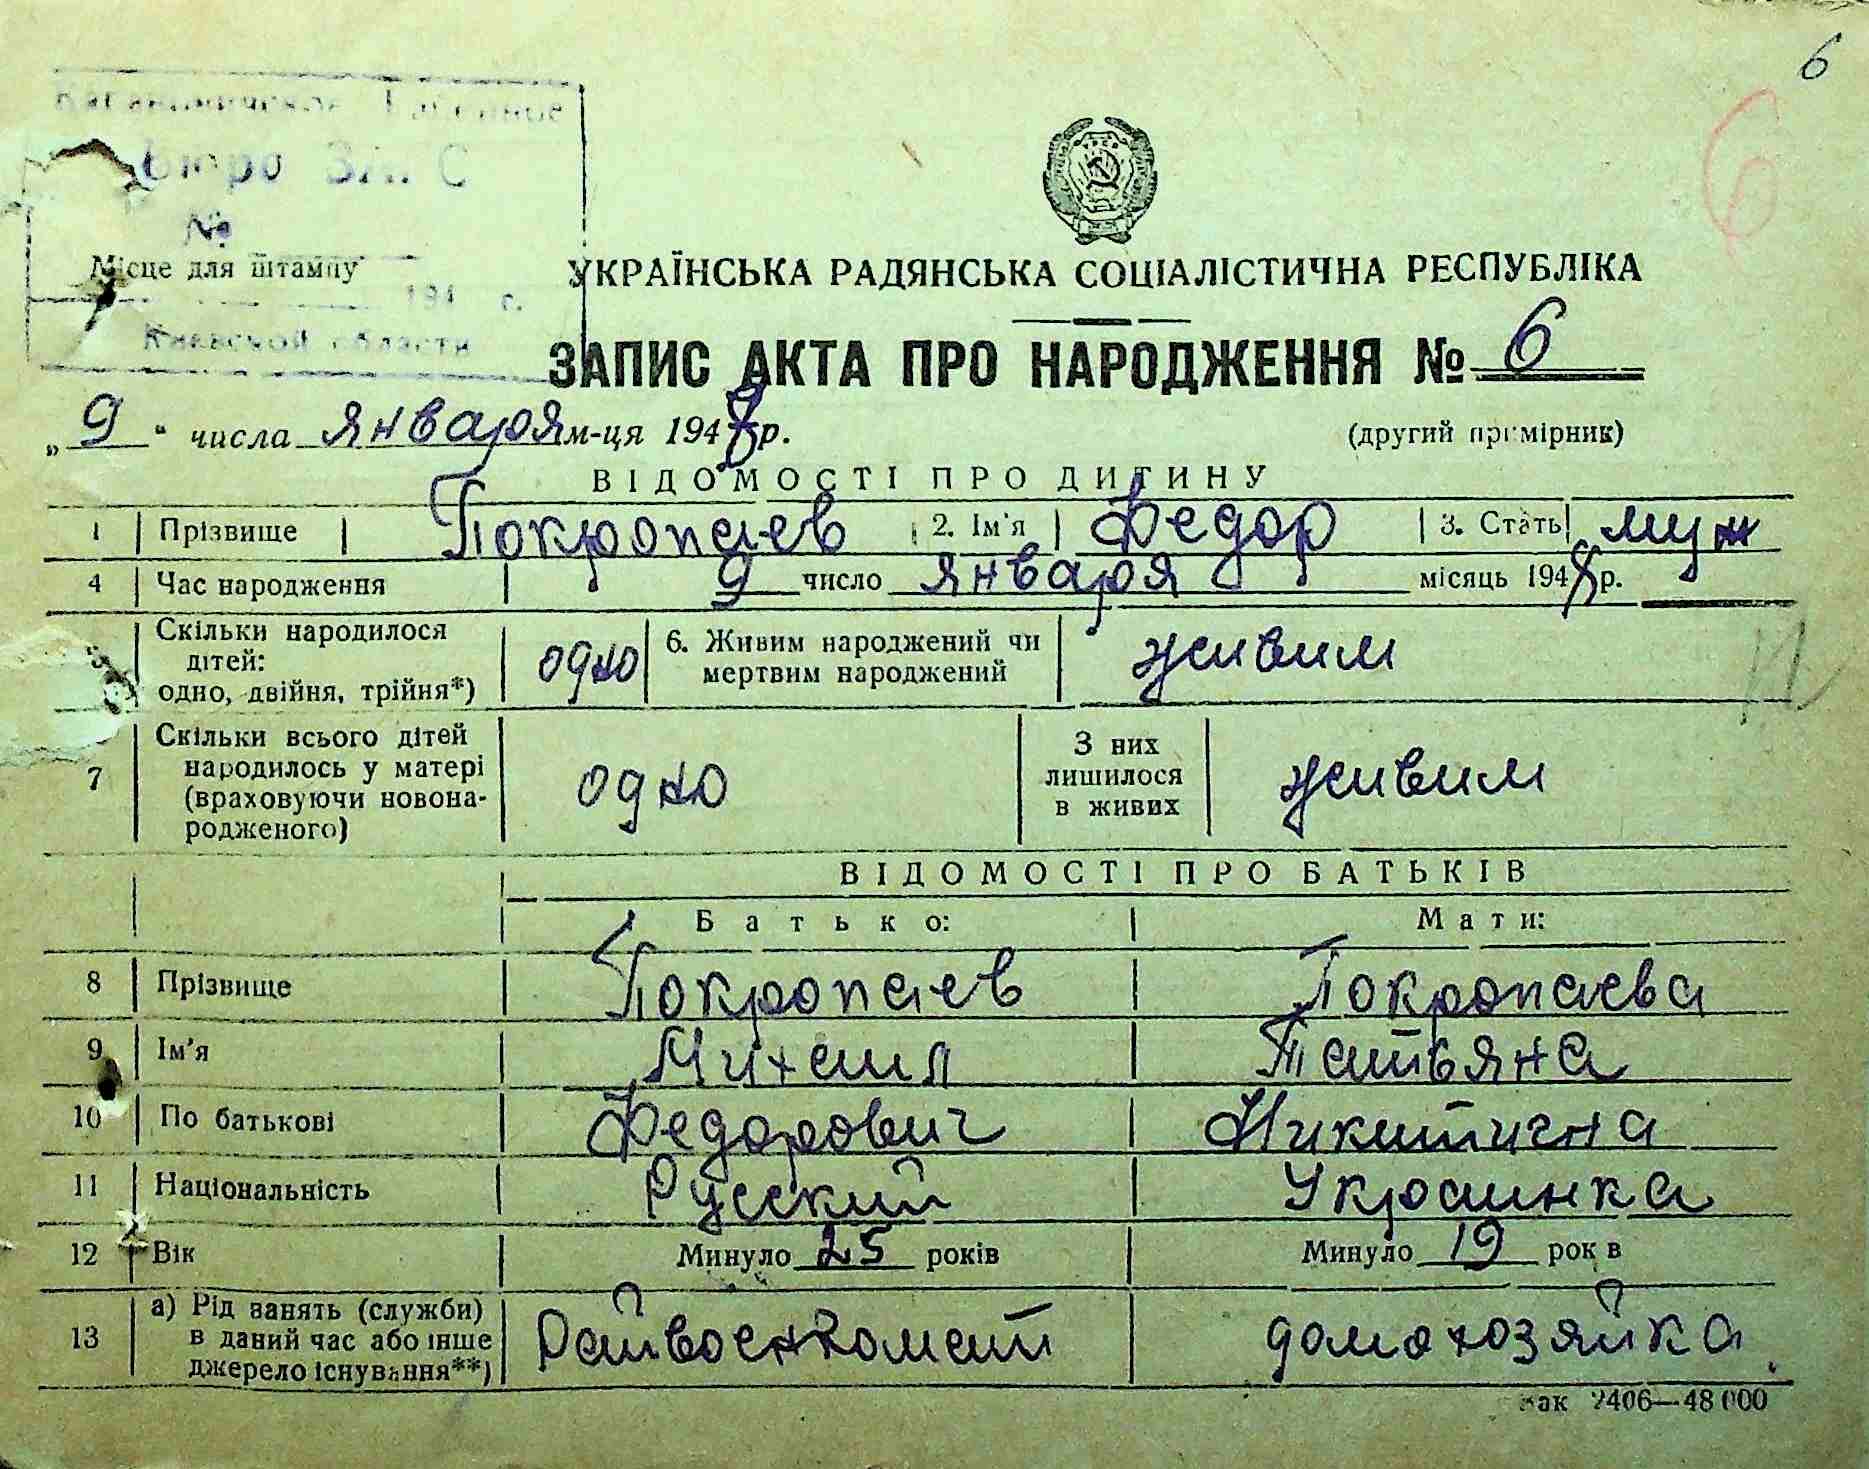 6
6
Бюро ЗАГС
№
Місце для штампу
194 г.
Киевской области
УКРАЇНСЬКА РАДЯНСЬКА СОЦІАЛІСТИЧНА РЕСПУБЛІКА
ЗАПИС АКТА ПРО НАРОДЖЕННЯ № 6
„9“ числа января м-ця 1948 р. (другий примірник)
ВІДОМОСТІ ПРО ДИТИНУ
1 Прізвище Покропаев 2. Ім'я Федор 3. Стать муж
4 Час народження 9 число января місяць 1948 р.
5 Скільки народилося дітей: одно, двійня, трійня*) одно 6. Живим народжений чи мертвим народжений живим
7 Скільки всього дітей народилось у матері (враховуючи новонародженого) одно З них лишилося в живих живим
ВІДОМОСТІ ПРО БАТЬКІВ
Батько: Мати:
8 Прізвище Покропаев Покропаева
9 Ім'я Михаил Татьяна
10 По батькові Федорович Никитична
11 Національність Русский Украинка
12 Вік Минуло 25 років Минуло 19 років
13 а) Рід занять (служби) в даний час або інше джерело існування**) Райвоенкомат домохозяйка
Зак 2406—48 000